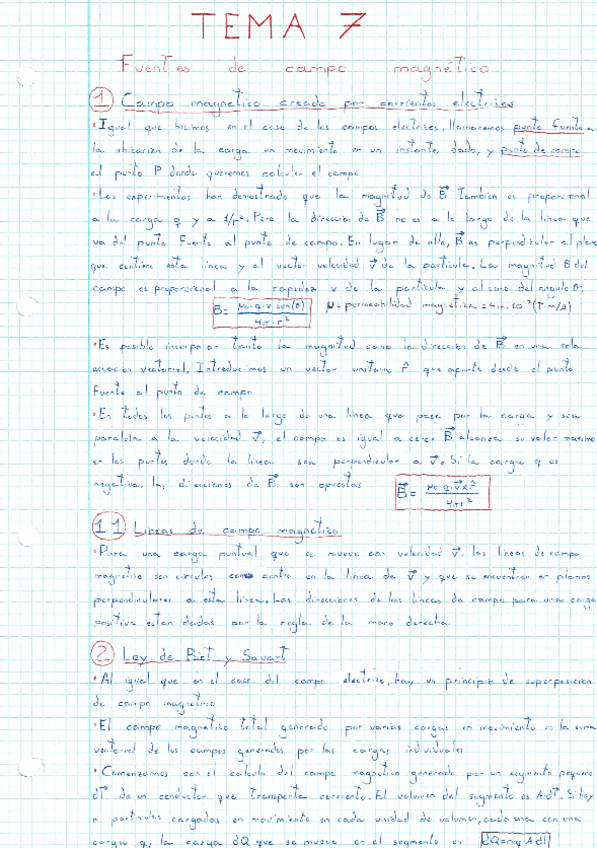 TEMA 7
Fuentes de campo magnético
1 Campo magnetico creado por corrientes electricas
• Igual que hicimos en el caso de los campos electricos, llamaremos punto fuente a
la ubicacion de la carga en movimiento en un instante dado, y punto de campo
al punto P donde queremos calcular el campo
• Los experimentos han demostrado que la magnitud de B⃗ tambien es proporcional
a la carga q y a 1/r². Pero la direccion de B⃗ no es a lo largo de la linea que
va del punto fuente al punto de campo. En lugar de ello, B⃗ es perpendicular al plano
que contiene esta linea y al vector velocidad v⃗ de la particula. La magnitud B del
campo es proporcional a la rapidez v de la particula y al seno del angulo θ.
B = μ₀·q·v·sen(θ) / 4π·r² μ = permeabilidad magnetica = 4π·10⁻⁷ (T·m/A)
• Es posible incorporar tanto la magnitud como la direccion de B⃗ en una sola
ecuacion vectorial. Introducimos un vector unitario r̂ que apunta desde el punto
fuente al punto de campo
• En todos los puntos a lo largo de una linea que pase por la carga y sea
paralela a la velocidad v⃗, el campo es igual a cero. B⃗ alcanza su valor maximo
en los puntos donde la linea sea perpendicular a v⃗. Si la carga q es
negativa, las direcciones de B⃗ son opuestas
B⃗ = μ₀·q·v⃗×r̂ / 4πr²
1.1 Lineas de campo magnetico
• Para una carga puntual que se mueve con velocidad v⃗, las lineas de campo
magnetico son circulos como centro en la linea de v⃗ y que se encuentran en planos
perpendiculares a esta linea. Las direcciones de las lineas de campo para una carga
positiva estan dadas por la regla de la mano derecha.
2 Ley de Biot y Savart
• Al igual que en el caso del campo electrico, hay un principio de superposicion
de campo magnetico
• El campo magnetico total generado por varias cargas en movimiento es la suma
vectorial de los campos generados por las cargas individuales
• Comenzamos con el calculo del campo magnetico generado por un segmento pequeño
dl⃗ de un conductor que transporta corriente. El volumen del segmento es A·dl. Si hay
n particulas cargadas en movimiento en cada unidad de volumen, cada una con una
carga q, la carga dQ que se mueve en el segmento es dQ=nqAdl